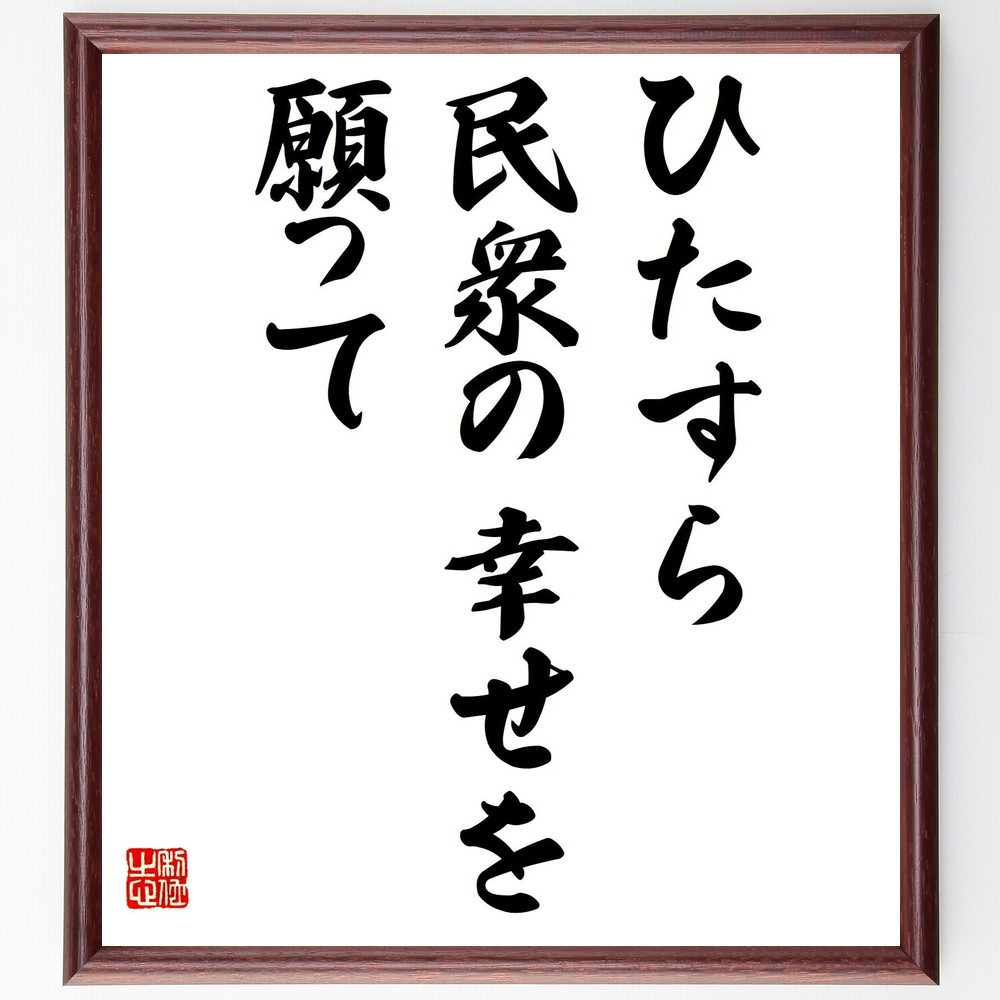 ひたすら
民衆の幸せを
願って